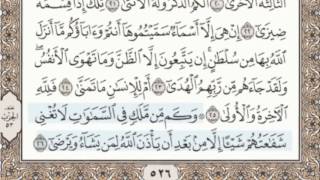 ٱلثَّالِثَةَ ٱلْأُخْرَىٰٓ ۝٢٠ أَلَكُمُ ٱلذَّكَرُ وَلَهُ ٱلْأُنثَىٰ ۝٢١ تِلْكَ إِذًا قِسْمَةٌ
ضِيزَىٰٓ ۝٢٢ إِنْ هِىَ إِلَّآ أَسْمَآءٌ سَمَّيْتُمُوهَآ أَنتُمْ وَءَابَآؤُكُم مَّآ أَنزَلَ
ٱللَّهُ بِهَا مِن سُلْطَٰنٍ ۚ إِن يَتَّبِعُونَ إِلَّا ٱلظَّنَّ وَمَا تَهْوَى ٱلْأَنفُسُ ۖ
وَلَقَدْ جَآءَهُم مِّن رَّبِّهِمُ ٱلْهُدَىٰٓ ۝٢٣ أَمْ لِلْإِنسَٰنِ مَا تَمَنَّىٰ ۝٢٤ فَلِلَّهِ
ٱلْءَاخِرَةُ وَٱلْأُولَىٰ ۝٢٥ وَكَم مِّن مَّلَكٍ فِى ٱلسَّمَٰوَٰتِ لَا تُغْنِى
شَفَٰعَتُهُمْ شَيْـًٔا إِلَّا مِنۢ بَعْدِ أَن يَأْذَنَ ٱللَّهُ لِمَن يَشَآءُ وَيَرْضَىٰٓ ۝٢٦
٥٢٦